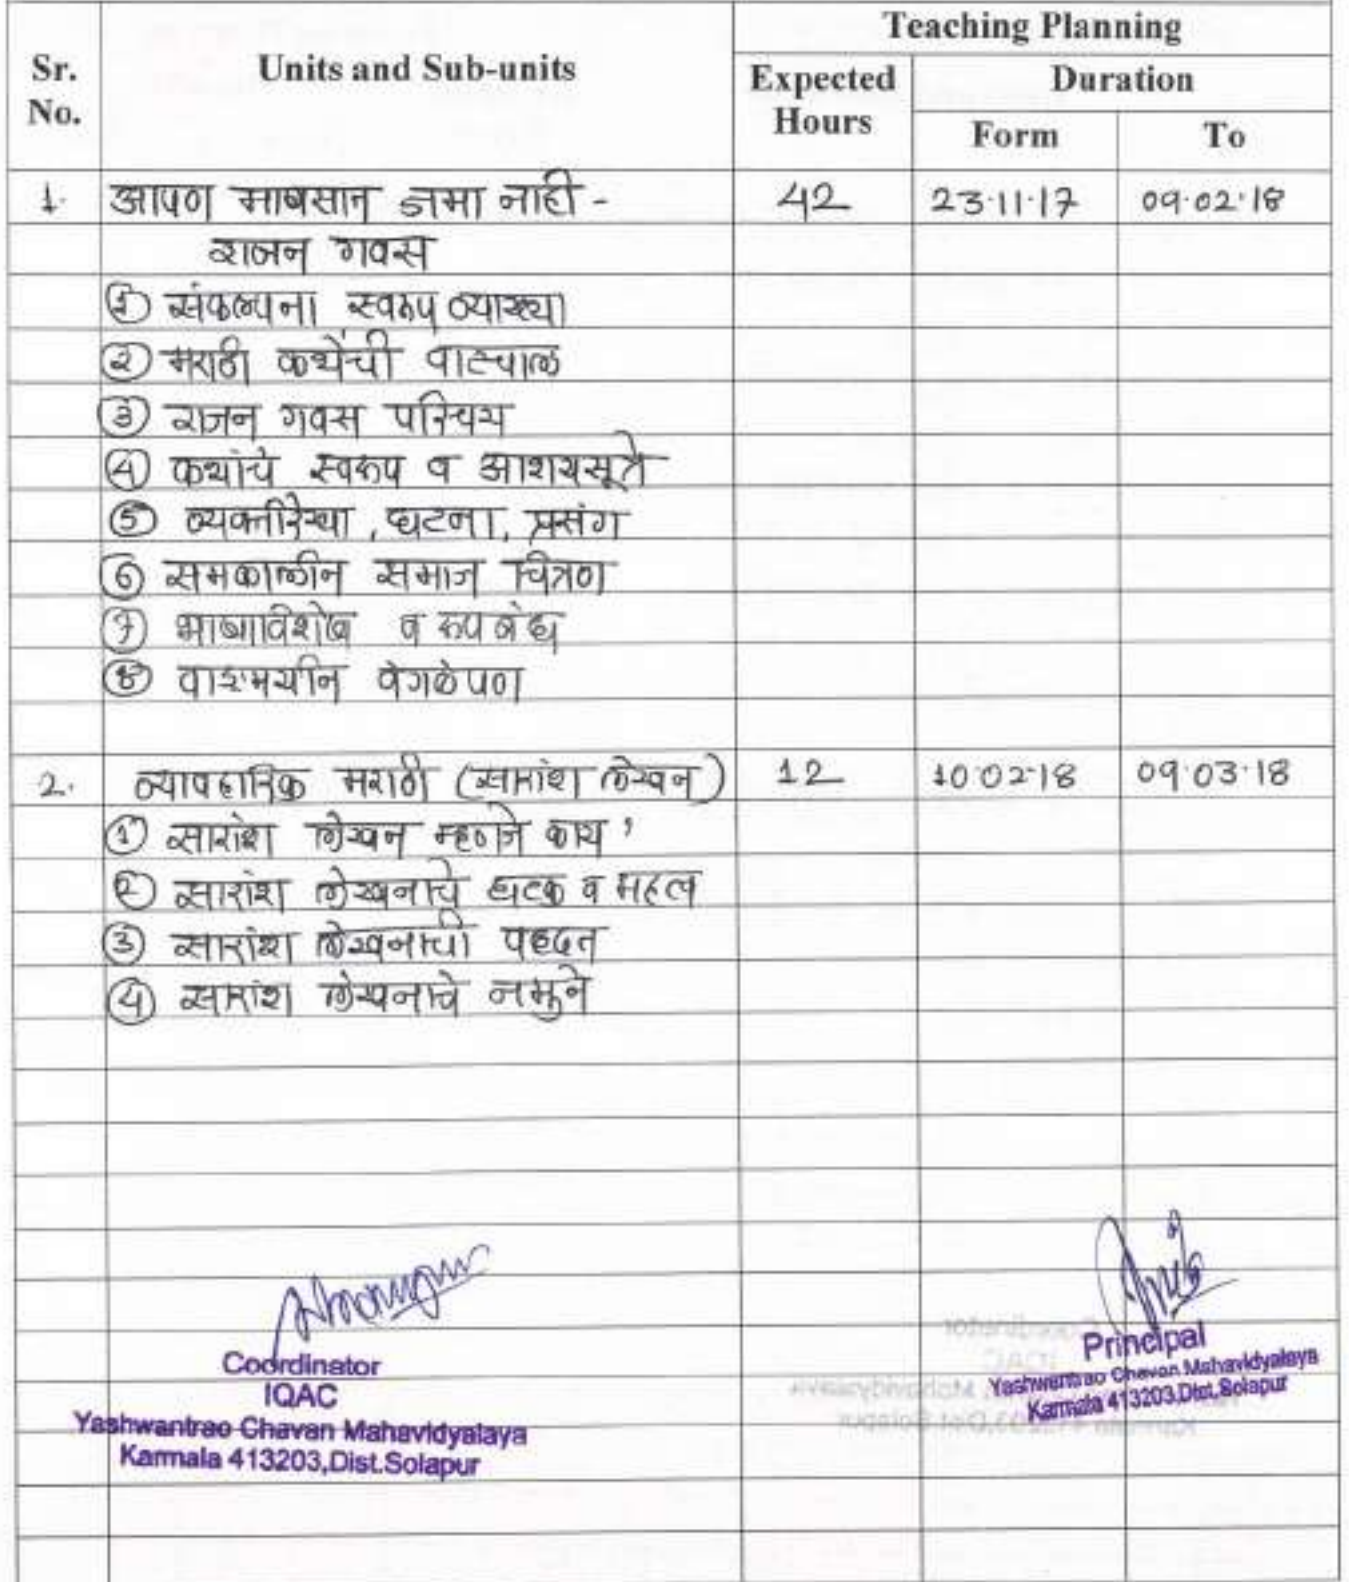 Teaching Planning
Sr. No. Units and Sub-units Expected Hours Duration
Form To
1. आपण माणसात जमा नाही - 42 23.11.17 09.02.18
राजन गवस
① संकल्पना स्वरूप व्याख्या
② मराठी कथेची वाटचाल
③ राजन गवस परिचय
④ कथांचे स्वरूप व आशयसूत्रे
⑤ व्यक्तीरेखा, घटना, प्रसंग
⑥ समकालीन समाज चित्रण
⑦ भाषाविशेष व रूपबंध
⑧ वाङ्मयीन वेगळेपण
2. व्यावहारिक मराठी (सारांश लेखन) 12 10.02.18 09.03.18
① सारांश लेखन म्हणजे काय ?
② सारांश लेखनाचे घटक व महत्व
③ सारांश लेखनाची पध्दत
④ सारांश लेखनाचे नमुने
Coordinator
IQAC
Yashwantrao Chavan Mahavidyalaya
Karmala 413203,Dist.Solapur
Principal
Yashwantrao Chavan Mahavidyalaya
Karmala 413203,Dist.Solapur